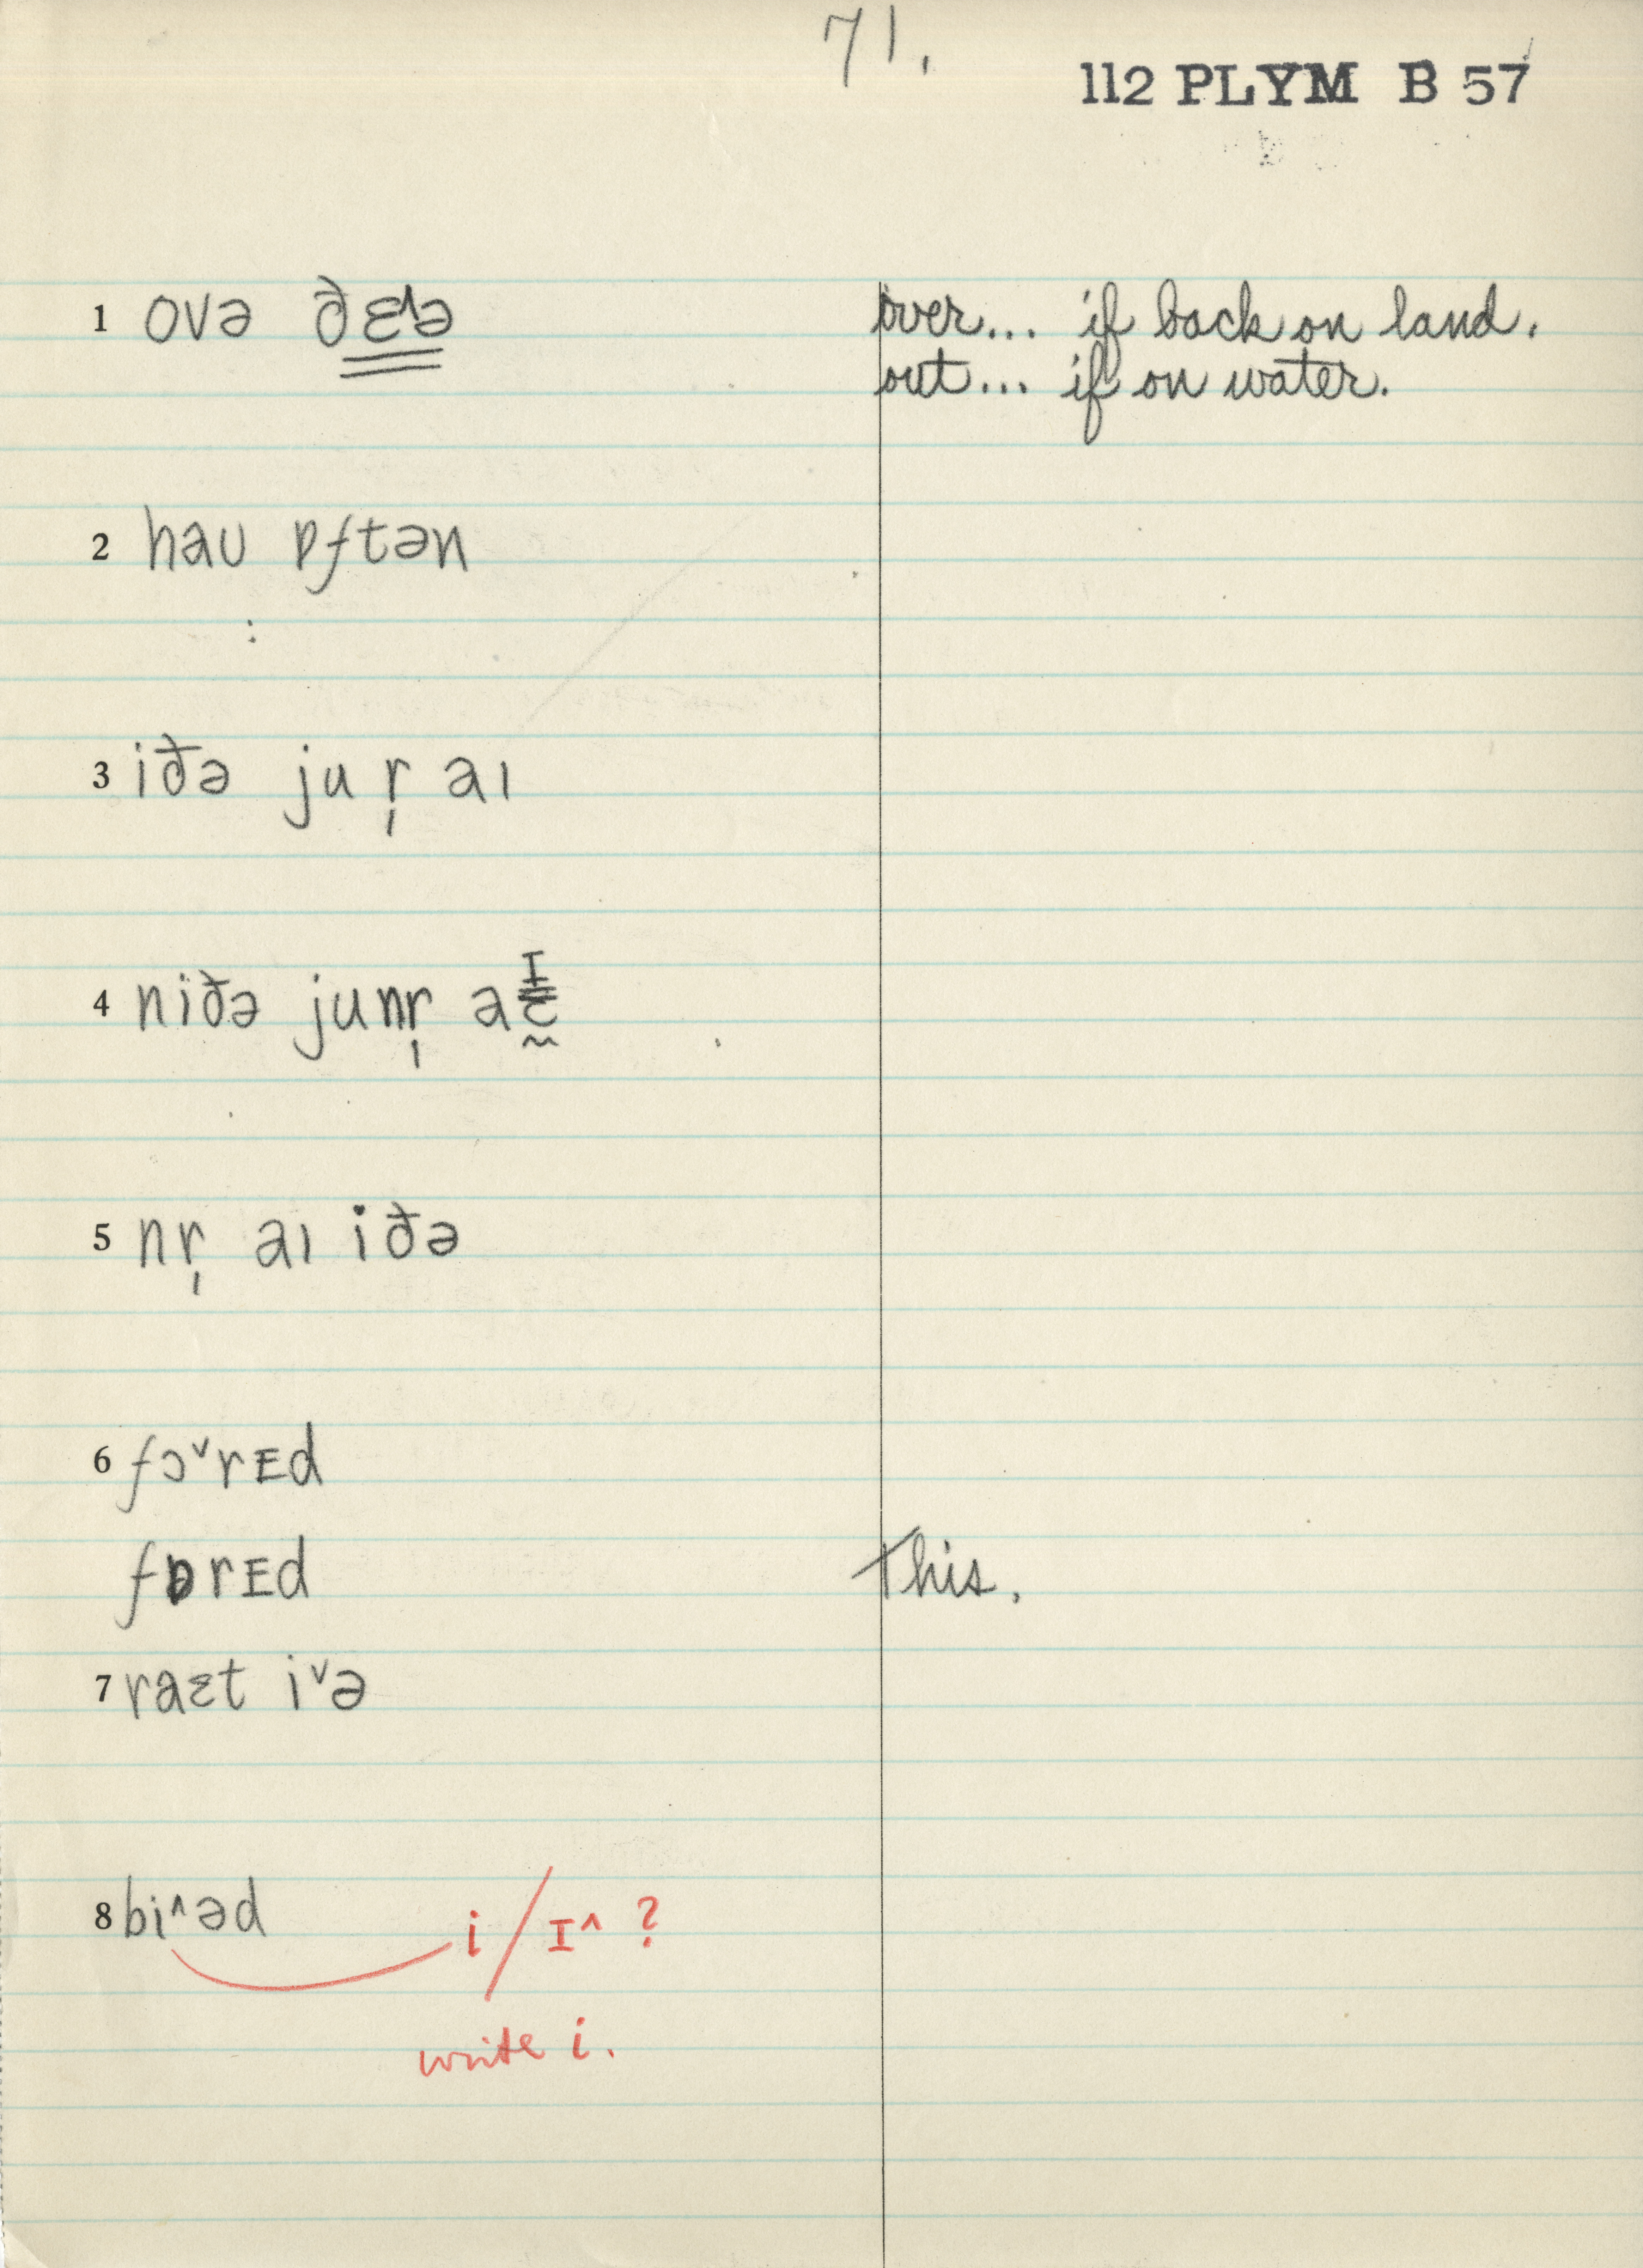 71.
112 PLYM B 57
1 ovə ðɛə over... if back on land.
out... if on water.
2 haʊ ɒftən
3 iðə ju r̩ aɪ
4 niðə junr̩ aɪ
5 nr̩ aɪ iðə
6 fɔ˅rᴇd
fɒrᴇd This.
7 raɛt i˅ə
8 bi˄əd i / ɪ˄ ?
write i.